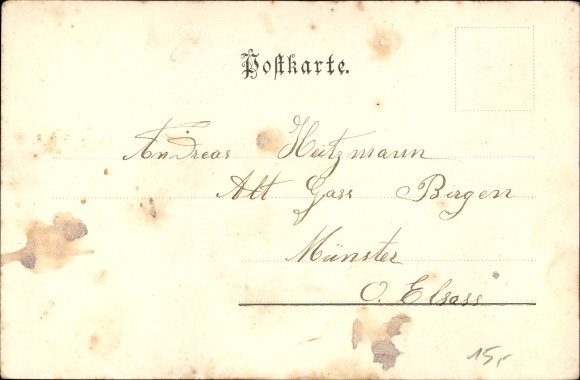 Postkarte.
Andreas Hutzmann
Alt Gass Birgen
Münster
O. Elsass
15,-